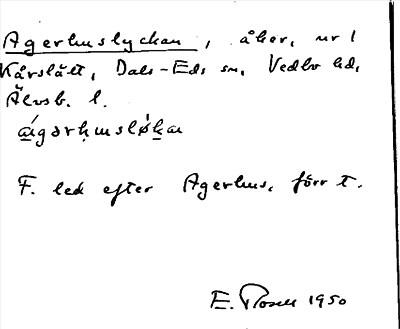 Agerhuslyckan, åker, nr 1
Kårslätt, Dals-Eds sn, Vedbo hd,
Älvsb. l.
F. led efter Agerhus, förr t.
E. Rosell 1950